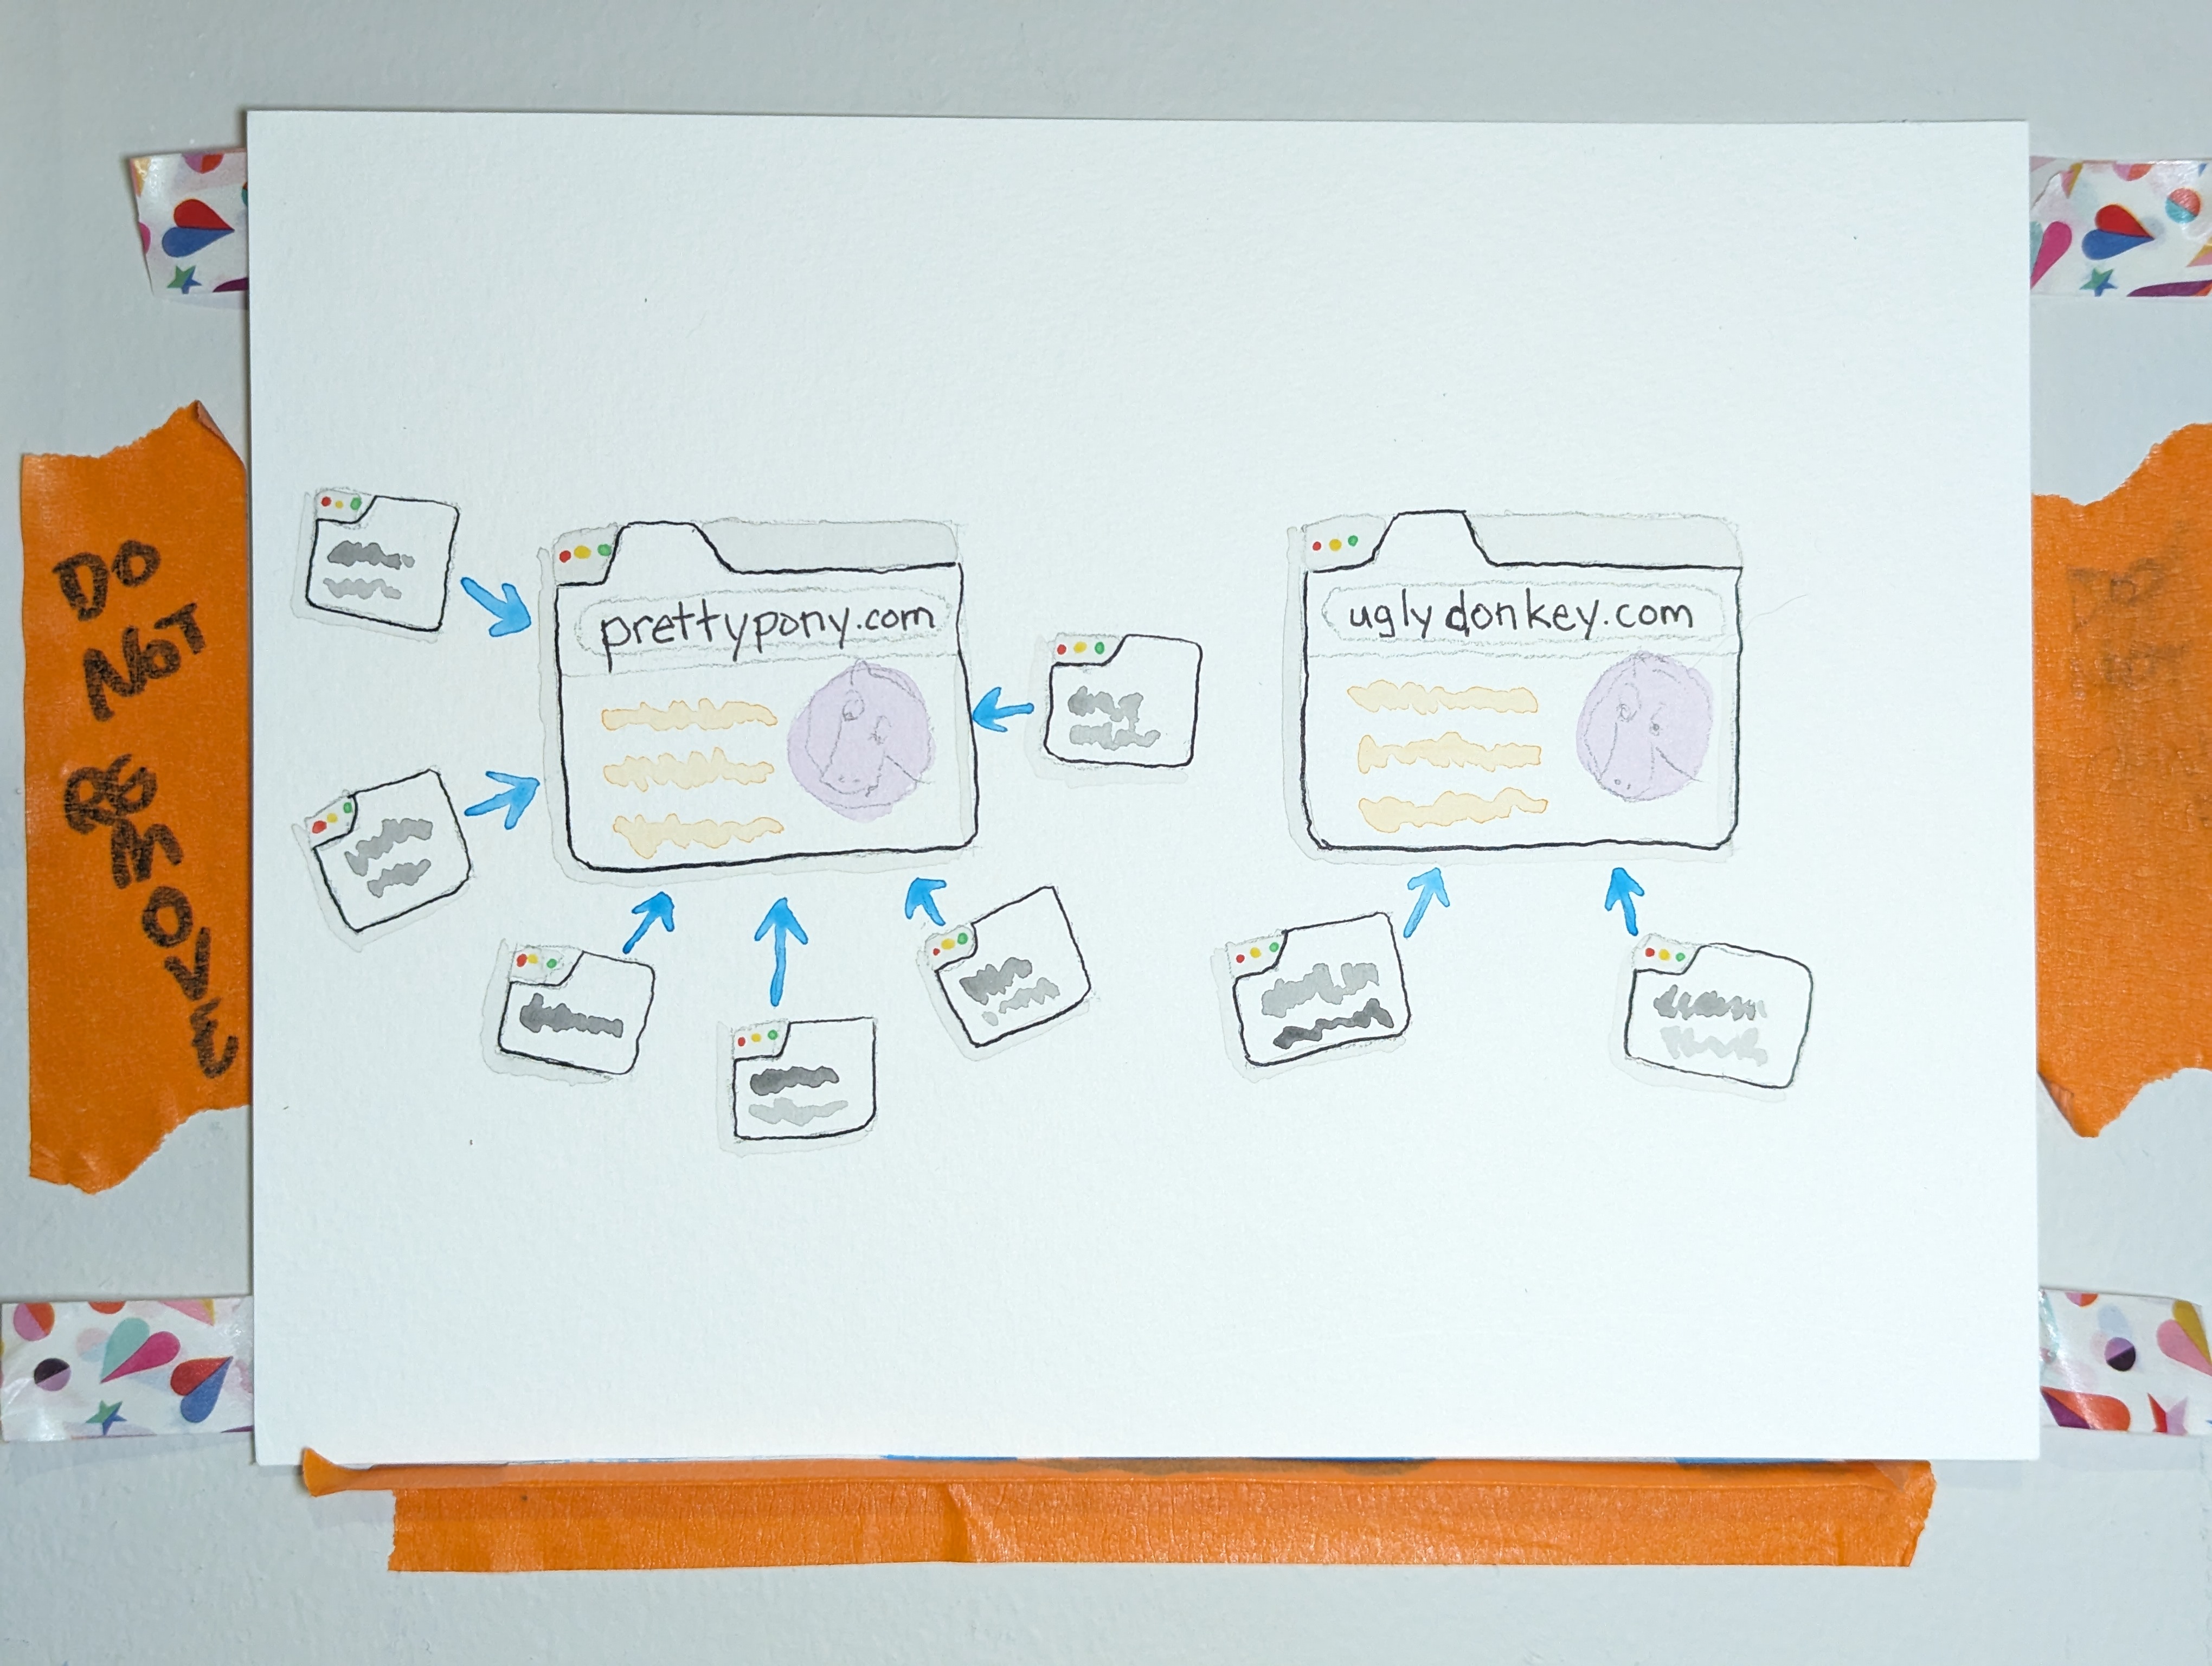 DO
NOT
REMOVE
prettypony.com
uglydonkey.com